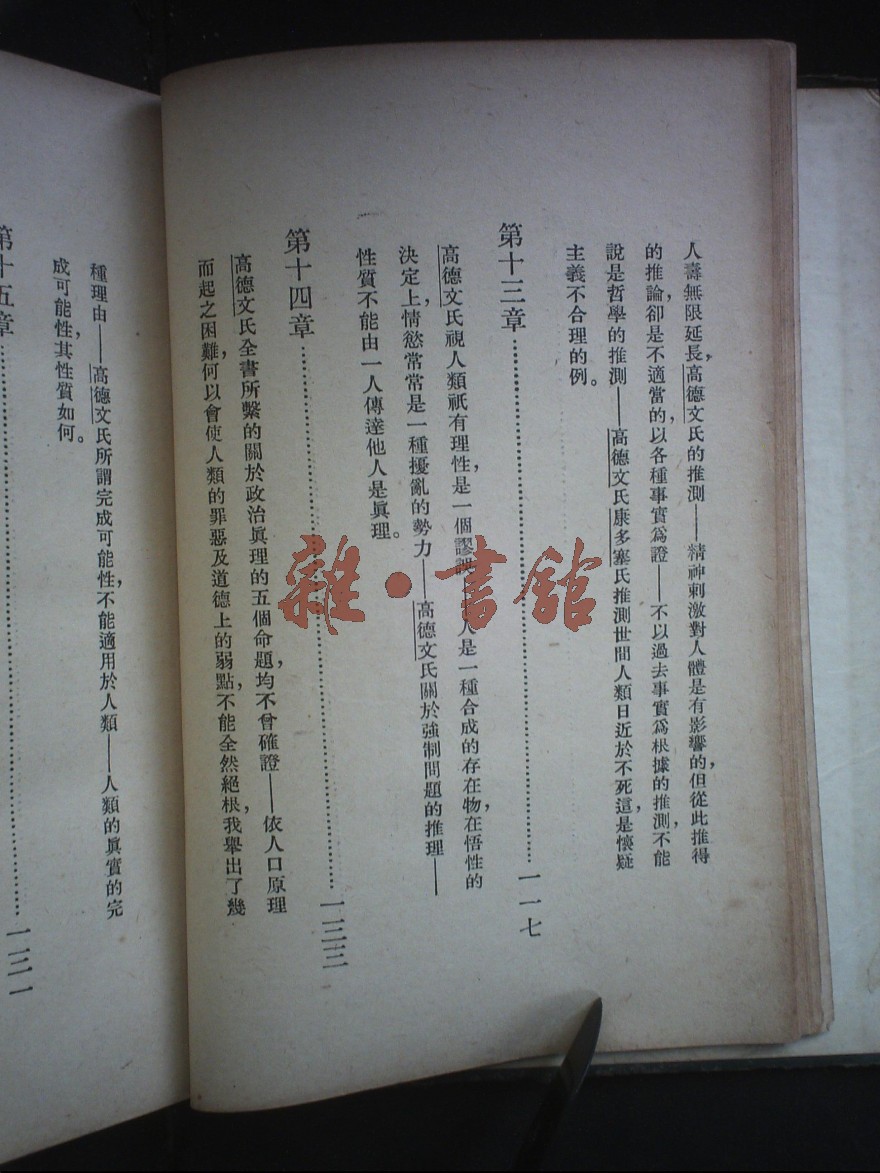 人壽無限延長,高德文氏的推測——精神刺激對人體是有影響的,但從此推得
的推論,卻是不適當的,以各種事實爲證——不以過去事實爲根據的推測,不能
說是哲學的推測——高德文氏康多塞氏推測世間人類日近於不死,這是懷疑
主義不合理的例。
第十三章……一一七
高德文氏視人類祇有理性,是一個謬誤 人是一種合成的存在物,在悟性的
決定上,情慾常常是一種擾亂的勢力——高德文氏關於強制問題的推理——
性質不能由一人傳達他人是眞理。
第十四章……一二三
高德文氏全書所繫的關於政治眞理的五個命題,均不曾確證——依人口原理
而起之困難,何以會使人類的罪惡及道德上的弱點,不能全然絕根,我舉出了幾
種理由——高德文氏所謂完成可能性,不能適用於人類——人類的眞實的完
成可能性,其性質如何。
第十五章……一三一
雜·書館